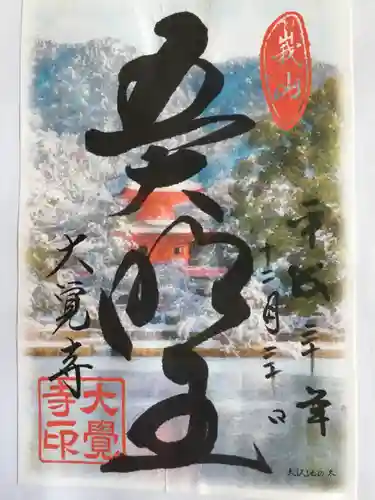 嵯山
平成三十年
十二月二十日
五大明王
大覚寺
大覺寺印
大沢池の冬